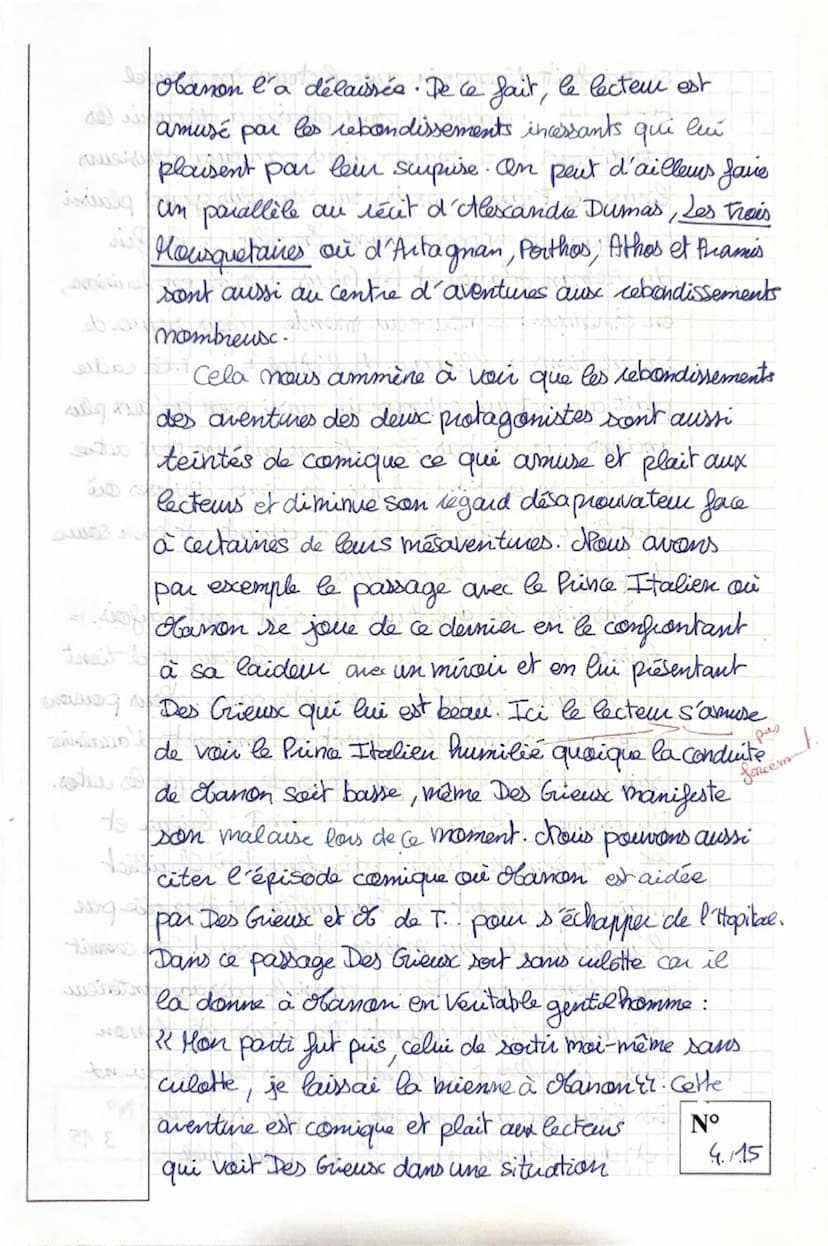 Manon l'a délaissée. De ce fait, le lecteur est
amusé par les rebondissements incessants qui lui
plaisent par leur surpise. On peut d'ailleurs faire
un parallèle au récit d'Alexandre Dumas, Les Trois
Mousquetaires où d'Artagnan, Porthos, Athos et Aramis
sont aussi au centre d'aventures aux rebondissements
nombreux.
Cela nous ammène à voir que les rebondissements
des aventures des deux protagonistes sont aussi
teintés de comique ce qui amuse et plait aux
lecteurs et diminue son regard désaprouvateur face
à certaines de leurs mésaventures. Nous avons
par exemple le passage avec le Prince Italien où
Manon se joue de ce dernier en le confrontant
à sa laideur avec un miroir et en lui présentant
Des Grieux qui lui est beau. Ici le lecteur s'amuse
pas forcément.
de voir le Prince Italien humilié quoique la conduite
de Manon soit basse, même Des Grieux manifeste
son malaise lors de ce moment. Nous pouvons aussi
citer l'épisode comique où Manon est aidée
par Des Grieux et M de T... pour s'échapper de l'Hopital.
Dans ce passage Des Grieux sort sans culotte car il
la donne à Manon en véritable gentilhomme :
« Mon parti fut pris, celui de sortir moi-même sans
culotte, je laissai la mienne à Manon ». Cette
aventure est comique et plait aux lecteurs
qui voit Des Grieux dans une situation
N°
4./15